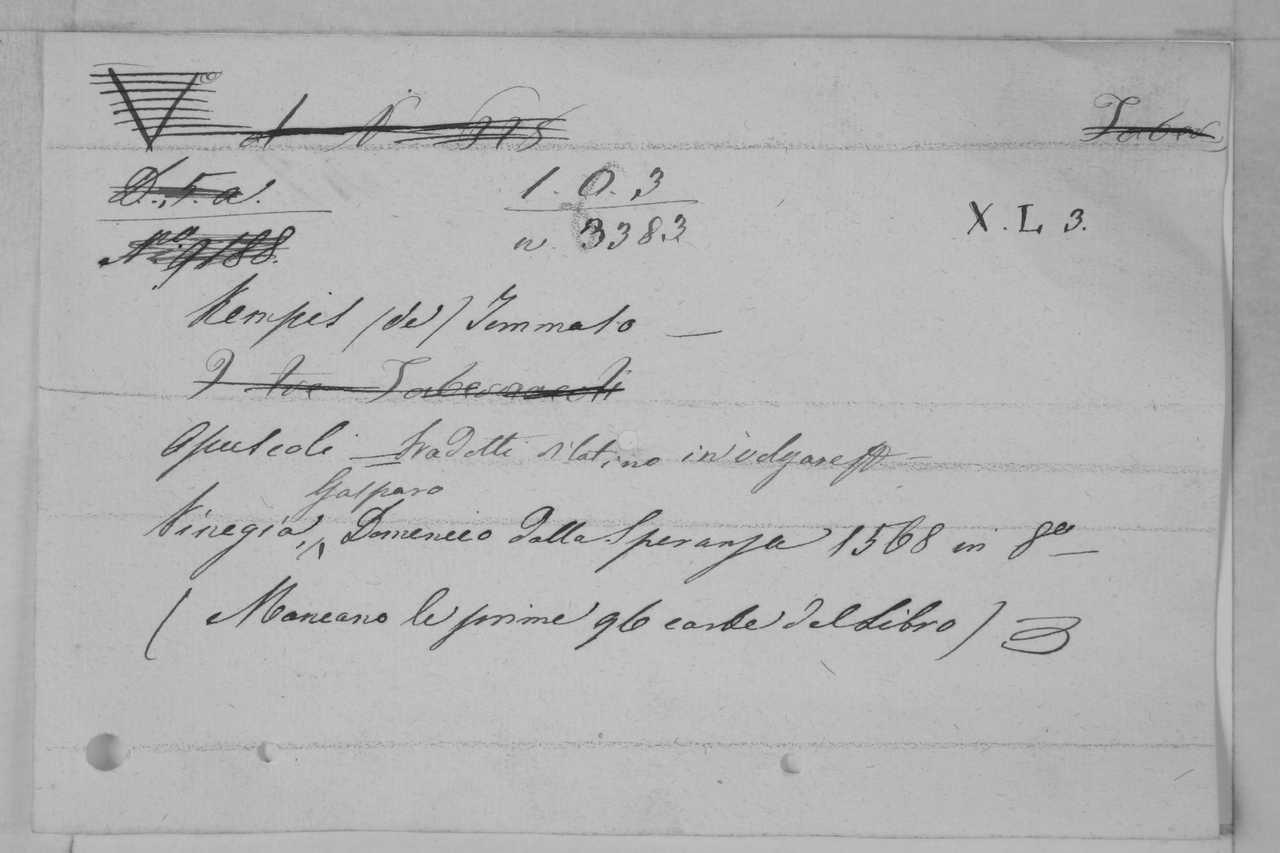 V A N 575 Taber
D. 5. a. 1. 0. 3 X. L 3.
N.ro 9188. n. 3383
Kempis (de) Tommaso —
I tre Tabernacoli
Opuscoli — tradotti di latino in volgare —
Gasparo
Vinegia, Domenico dalla Speranza 1568 in 8º —
( Mancano le prime 96 carte del Libro )